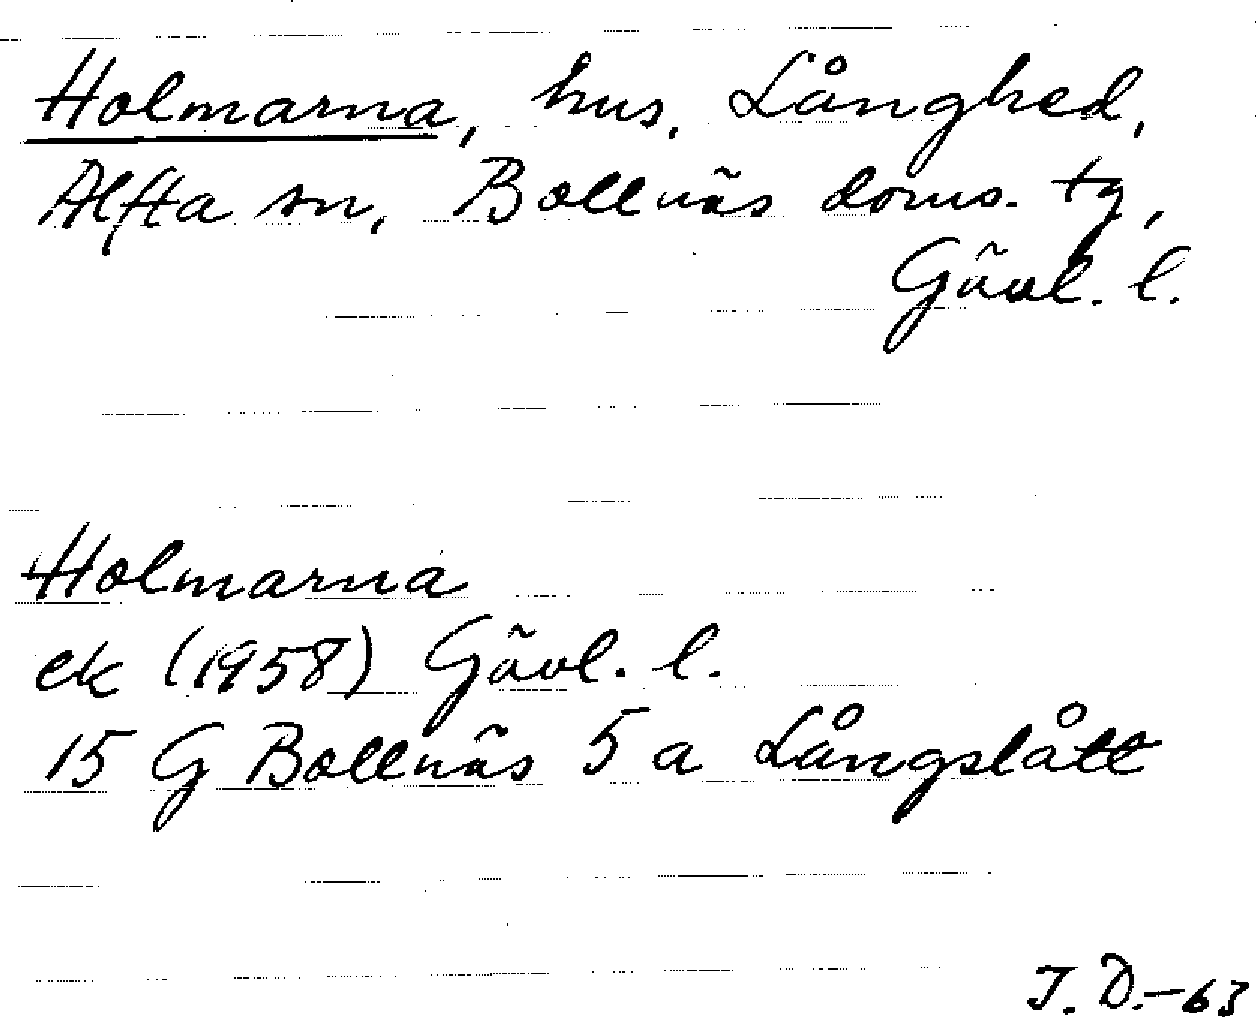 Holmarna, hus, Långhed,
Alfta sn, Bollnäs doms. tg,
Gävl. l.
Holmarna
ek (1958) Gävl. l.
15 G Bollnäs 5 a Långslått
I. D.-63